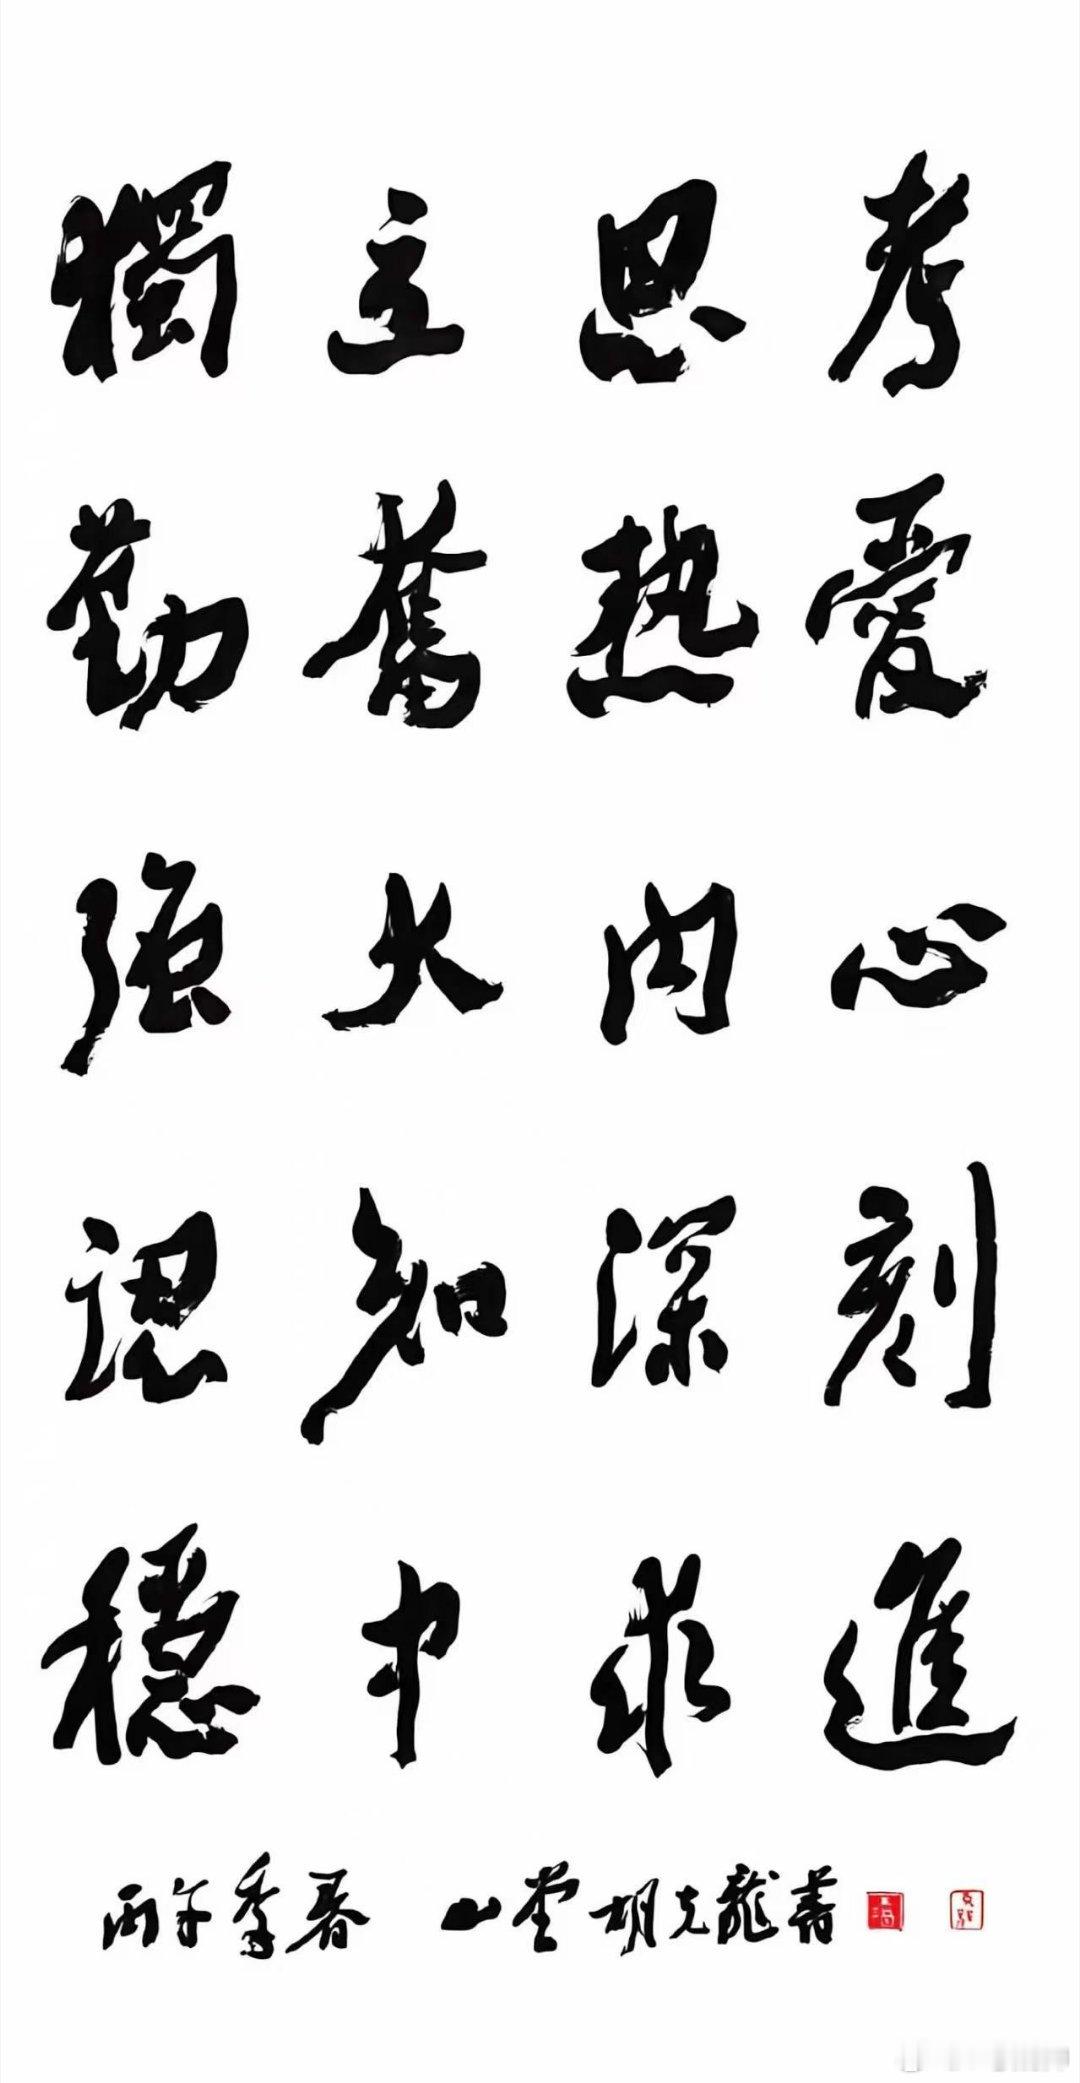 獨立思考
勤奮热愛
强大内心
認知深刻
穩中求進
丙午季春 山堂胡克龍書